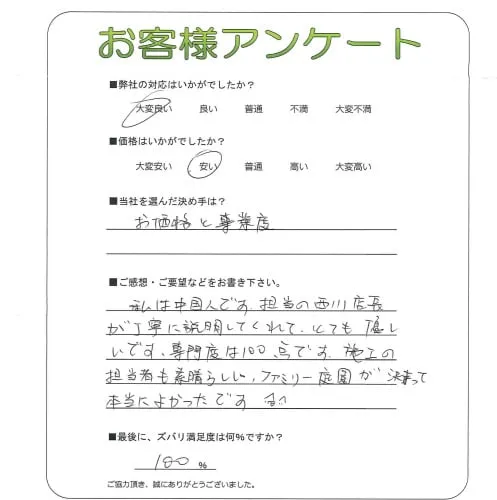 お客様アンケート
■弊社の対応はいかがでしたか？
大変良い 良い 普通 不満 大変不満
■価格はいかがでしたか？
大変安い 安い 普通 高い 大変高い
■当社を選んだ決め手は？
お価格と専業度
■ご感想・ご要望などをお書き下さい。
私は中国人です 担当の西川店長
が丁寧に説明してくれて、とても優し
いです、専門度は100点です。施工の
担当者も素晴らしい、ファミリー庭園が決まって
本当によかったです
■最後に、ズバリ満足度は何％ですか？
100 %
ご協力頂き、誠にありがとうございました。